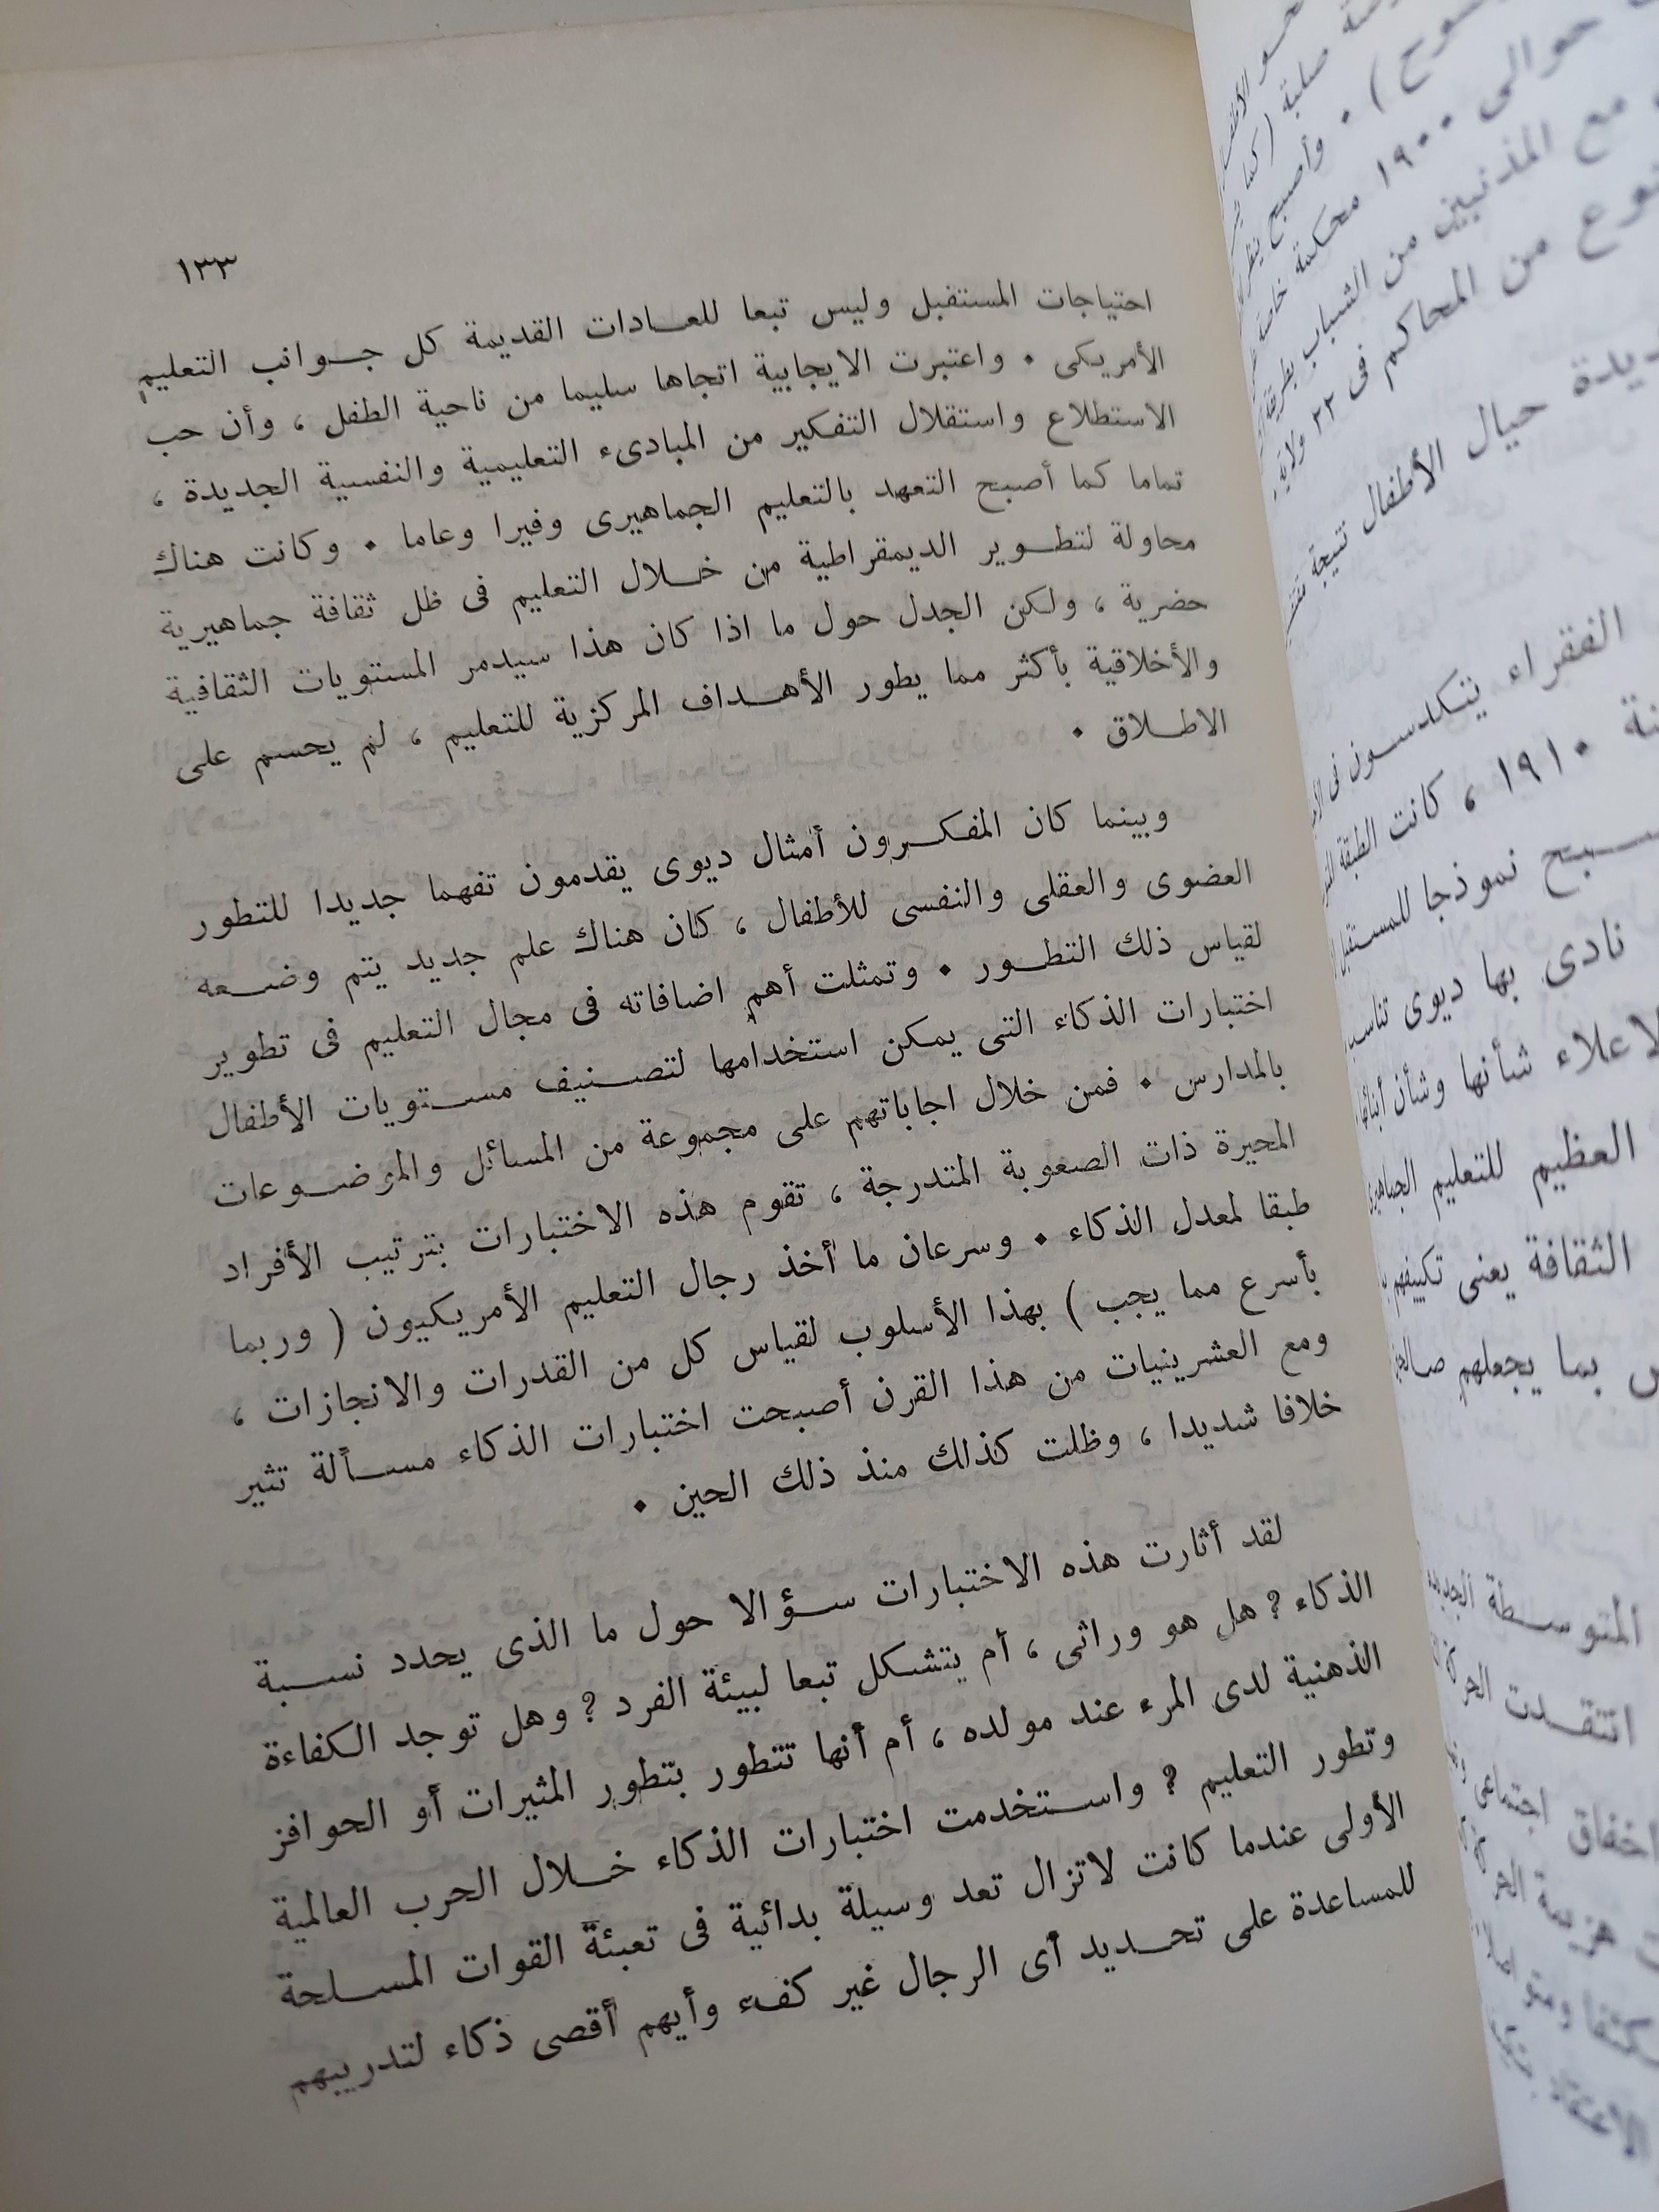 ١٣٣
احتياجات المستقبل وليس تبعا للعادات القديمة كل جوانب التعليم
الأمريكى . واعتبرت الايجابية اتجاها سليما من ناحية الطفل ، وأن حب
الاستطلاع واستقلال التفكير من المبادىء التعليمية والنفسية الجديدة ،
تماما كما أصبح التعهد بالتعليم الجماهيرى وفيرا وعاما . وكانت هناك
محاولة لتطوير الديمقراطية من خلال التعليم فى ظل ثقافة جماهيرية
حضرية ، ولكن الجدل حول ما اذا كان هذا سيدمر المستويات الثقافية
والأخلاقية بأكثر مما يطور الأهداف المركزية للتعليم ، لم يحسم على
الاطلاق .
وبينما كان المفكرون أمثال ديوى يقدمون تفهما جديدا للتطور
العضوى والعقلى والنفسى للأطفال ، كان هناك علم جديد يتم وضعه
لقياس ذلك التطور . وتمثلت أهم اضافاته فى مجال التعليم فى تطوير
اختبارات الذكاء التى يمكن استخدامها لتصنيف مستويات الأطفال
بالمدارس . فمن خلال اجاباتهم على مجموعة من المسائل والموضوعات
المحيرة ذات الصعوبة المتدرجة ، تقوم هذه الاختبارات بترتيب الأفراد
طبقا لمعدل الذكاء . وسرعان ما أخذ رجال التعليم الأمريكيون ( وربما
بأسرع مما يجب ) بهذا الأسلوب لقياس كل من القدرات والانجازات ،
ومع العشرينيات من هذا القرن أصبحت اختبارات الذكاء مسألة تثير
خلافا شديدا ، وظلت كذلك منذ ذلك الحين .
لقد أثارت هذه الاختبارات سؤالا حول ما الذى يحدد نسبة
الذكاء ؟ هل هو وراثى ، أم يتشكل تبعا لبيئة الفرد ؟ وهل توجد الكفاءة
الذهنية لدى المرء عند مولده ، أم أنها تتطور بتطور المثيرات أو الحوافز
وتطور التعليم ؟ واستخدمت اختبارات الذكاء خلال الحرب العالمية
الأولى عندما كانت لاتزال تعد وسيلة بدائية فى تعبئة القوات المسلحة
للمساعدة على تحديد أى الرجال غير كفء وأيهم أقصى ذكاء لتدريبهم
حوالى ١٩٠٠ محكمة خاصة
مع المذنبين من الشباب بطريقة
نوع من المحاكم فى ٢٢ ولاية .
حيال الأطفال نتيجة
الفقراء يتكدسون فى
١٩١٠ ، كانت الطبقة
نموذجا للمستقبل
نادى بها ديوى
لاعلاء شأنها وشأن أبنائها
العظيم للتعليم
الثقافة يعنى تكييفهم
بما يجعلهم
المتوسطة الجديدة
انتقدت
اخفاق اجتماعى
هزيمة